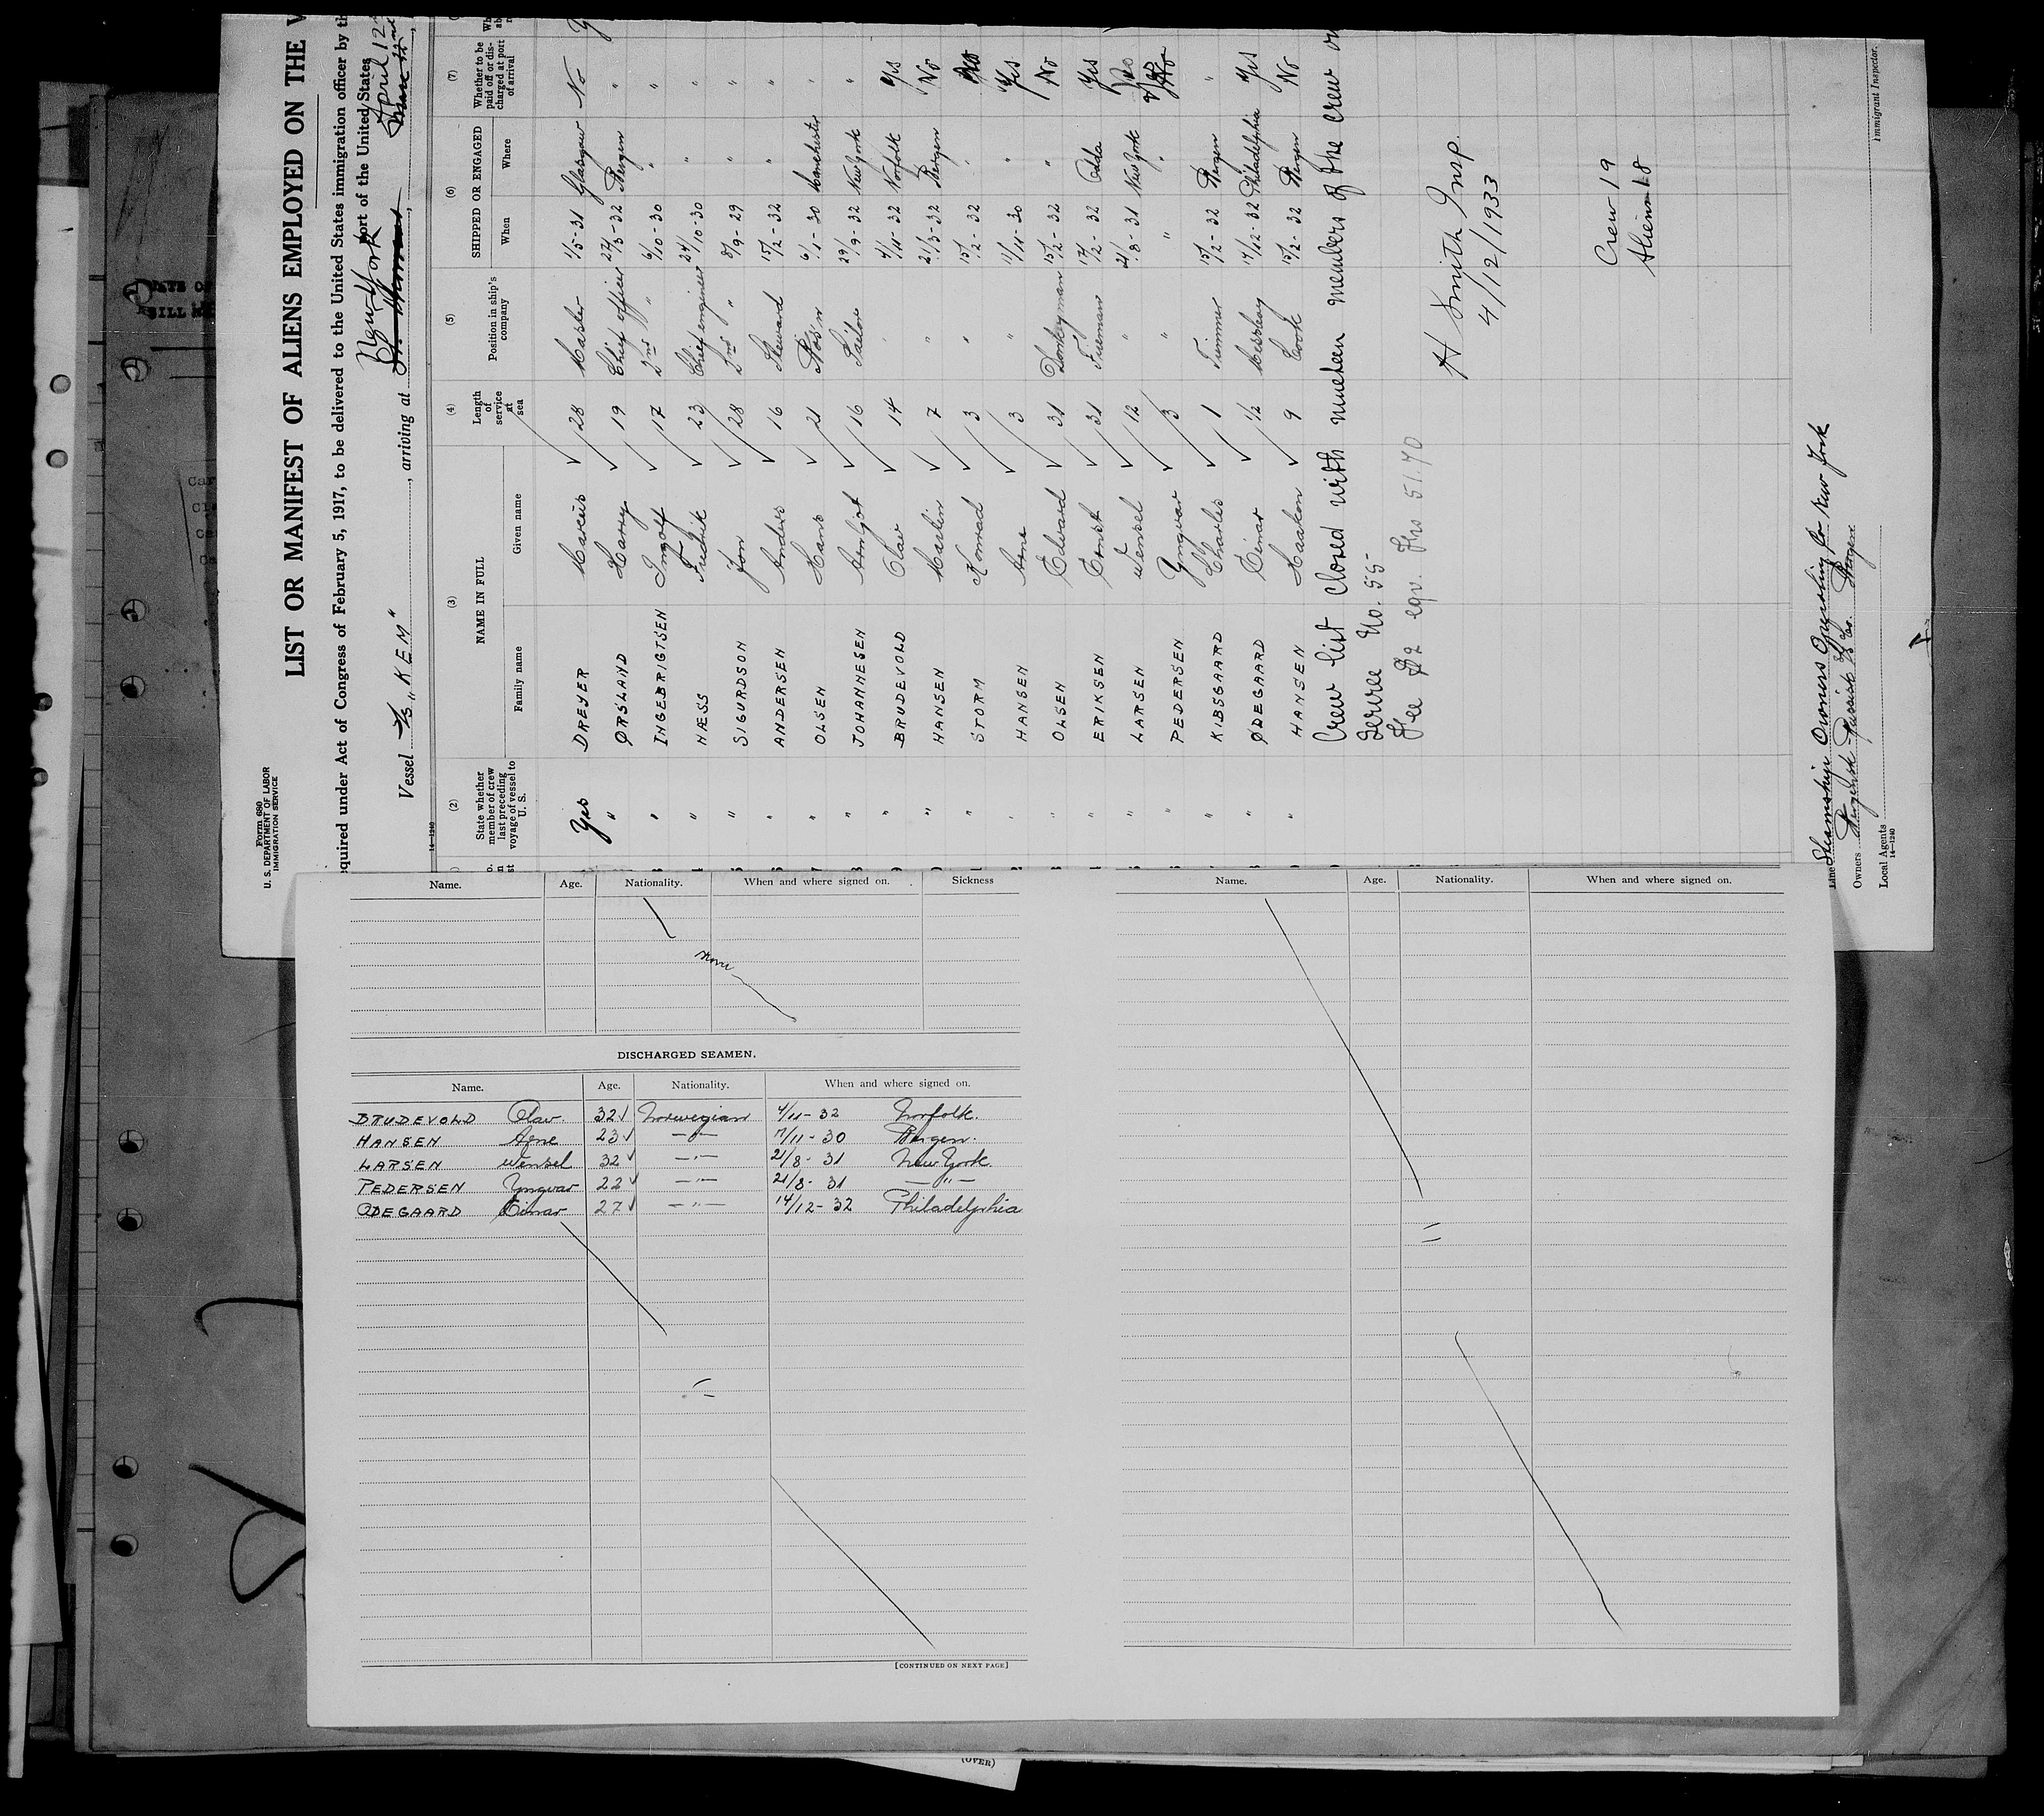 Form 680
U. S. DEPARTMENT OF LABOR
IMMIGRATION SERVICE
LIST OR MANIFEST OF ALIENS EMPLOYED ON THE
equired under Act of Congress of February 5, 1917, to be delivered to the United States immigration officer by th
port of the United States
Vessel S/S „KEM“, arriving at New York April 12
14—1240
(2) (3) (4) (5) (6) (7)
State whether member of crew last preceding voyage of vessel to U. S.
NAME IN FULL
Family name Given name
Length of service at sea
Position in ship's company
SHIPPED OR ENGAGED
When Where
Whether to be paid off or discharged at port of arrival
Yes DREYER Marcus 28 Master 1/5-31 Glasgow No
" ØRSLAND Harry 19 Chief officer 22/3-32 Bergen "
" INGEBRIGTSEN Ingolf 17 2nd " 6/10-30 " "
" NÆSS Fredrik 23 Chief engineer 24/10-30 " "
" SIGURDSON Jon 28 2nd " 8/9-29 " "
" ANDERSEN Anders 16 Steward 15/2-32 " "
" OLSEN Hans 21 Bos'n 6/1-30 Manchester "
" JOHANNESEN Arnljot 16 Sailor 29/9-32 New York "
" BRUDEVOLD Olav 14 " 4/11-32 Norfolk Yes
" HANSEN Martin 7 " 21/3-32 Bergen No
" STORM Konrad 3 " 15/2-32 " No
" HANSEN Arne 3 " 11/11-30 " Yes
" OLSEN Edvard 31 Donkeyman 15/2-32 " No
" ERIKSEN Ernst 31 Fireman 17/2-32 Odda Yes
" LARSEN Wensel 12 " 21/8-31 New York
" PEDERSEN Yngvar 3 " " "
" KIBSGAARD Charles 1 Trimmer 15/2-32 Bergen "
" ØDEGAARD Einar 1/2 Messboy 14/12-32 Philadelphia Yes
" HANSEN Haakon 9 Cook 15/2-32 Bergen No
Crew list closed with nineteen members of the crew
Service No. 55-
Fee $2 eqv. Frs 51.70
H Smith Insp.
4/12/1933
Crew 19
Aliens 18
Immigrant Inspector.
Line Steamship Owners Operating Co New York
Owners Bergen
Local Agents
14—1240
Name. Age. Nationality. When and where signed on. Sickness
None
DISCHARGED SEAMEN.
Name. Age. Nationality. When and where signed on.
BRUDEVOLD Olav. 32 Norwegian 4/11-32 Norfolk.
HANSEN Arne 23 —"— 11/11-30 Bergen.
LARSEN Wensel 32 —"— 21/8-31 New York.
PEDERSEN Yngvar 22 —"— 21/8-31 —"—
ODEGAARD Einar 27 —"— 14/12-32 Philadelphia
[CONTINUED ON NEXT PAGE]
Name. Age. Nationality. When and where signed on.
(OVER)